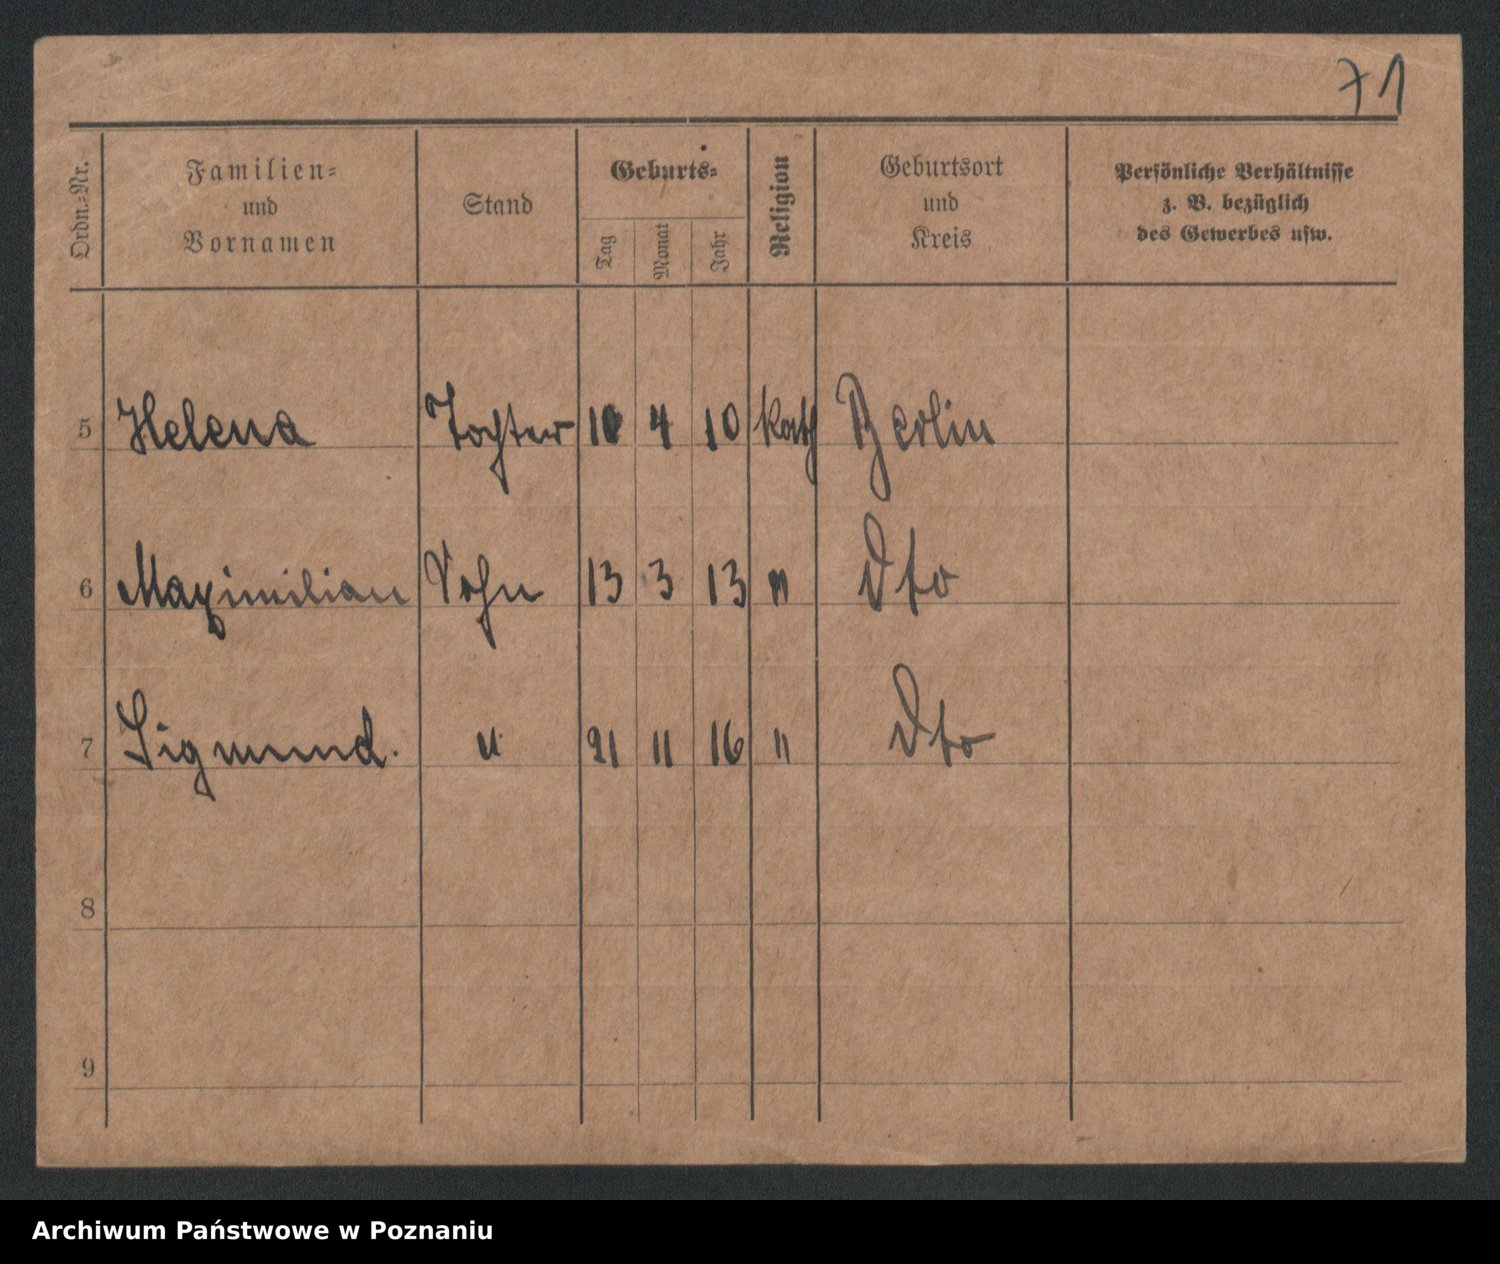 71
Ordn.-Nr. Familien- und Vornamen Stand Geburts- Tag Monat Jahr Religion Geburtsort und Kreis Persönliche Verhältnisse z. B. bezüglich des Gewerbes usw.
5 Helena Tochter 10 4 10 kath Berlin
6 Maximilian Sohn 13 3 13 " dto
7 Sigmund. " 21 11 16 " dto
8
9
Archiwum Państwowe w Poznaniu